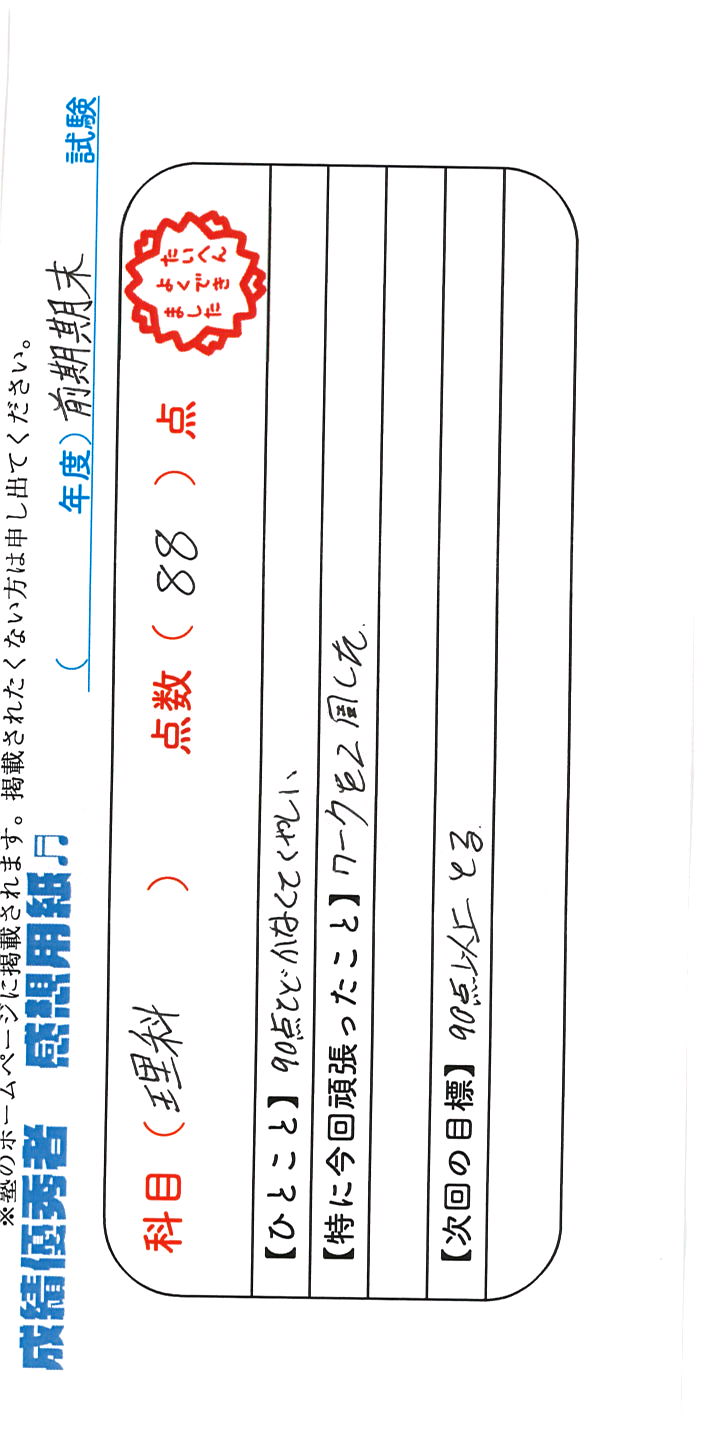 ※塾のホームページに掲載されます。掲載されたくない方は申し出てください。
成績優秀者 感想用紙♬ ( 年度)前期期末 試験
科目(理科) 点数(88)点
たいへん
よくでき
ました
【ひとこと】90点とどかなくてくやしい、
【特に今回頑張ったこと】ワークを2周した.
【次回の目標】90点以上とる.